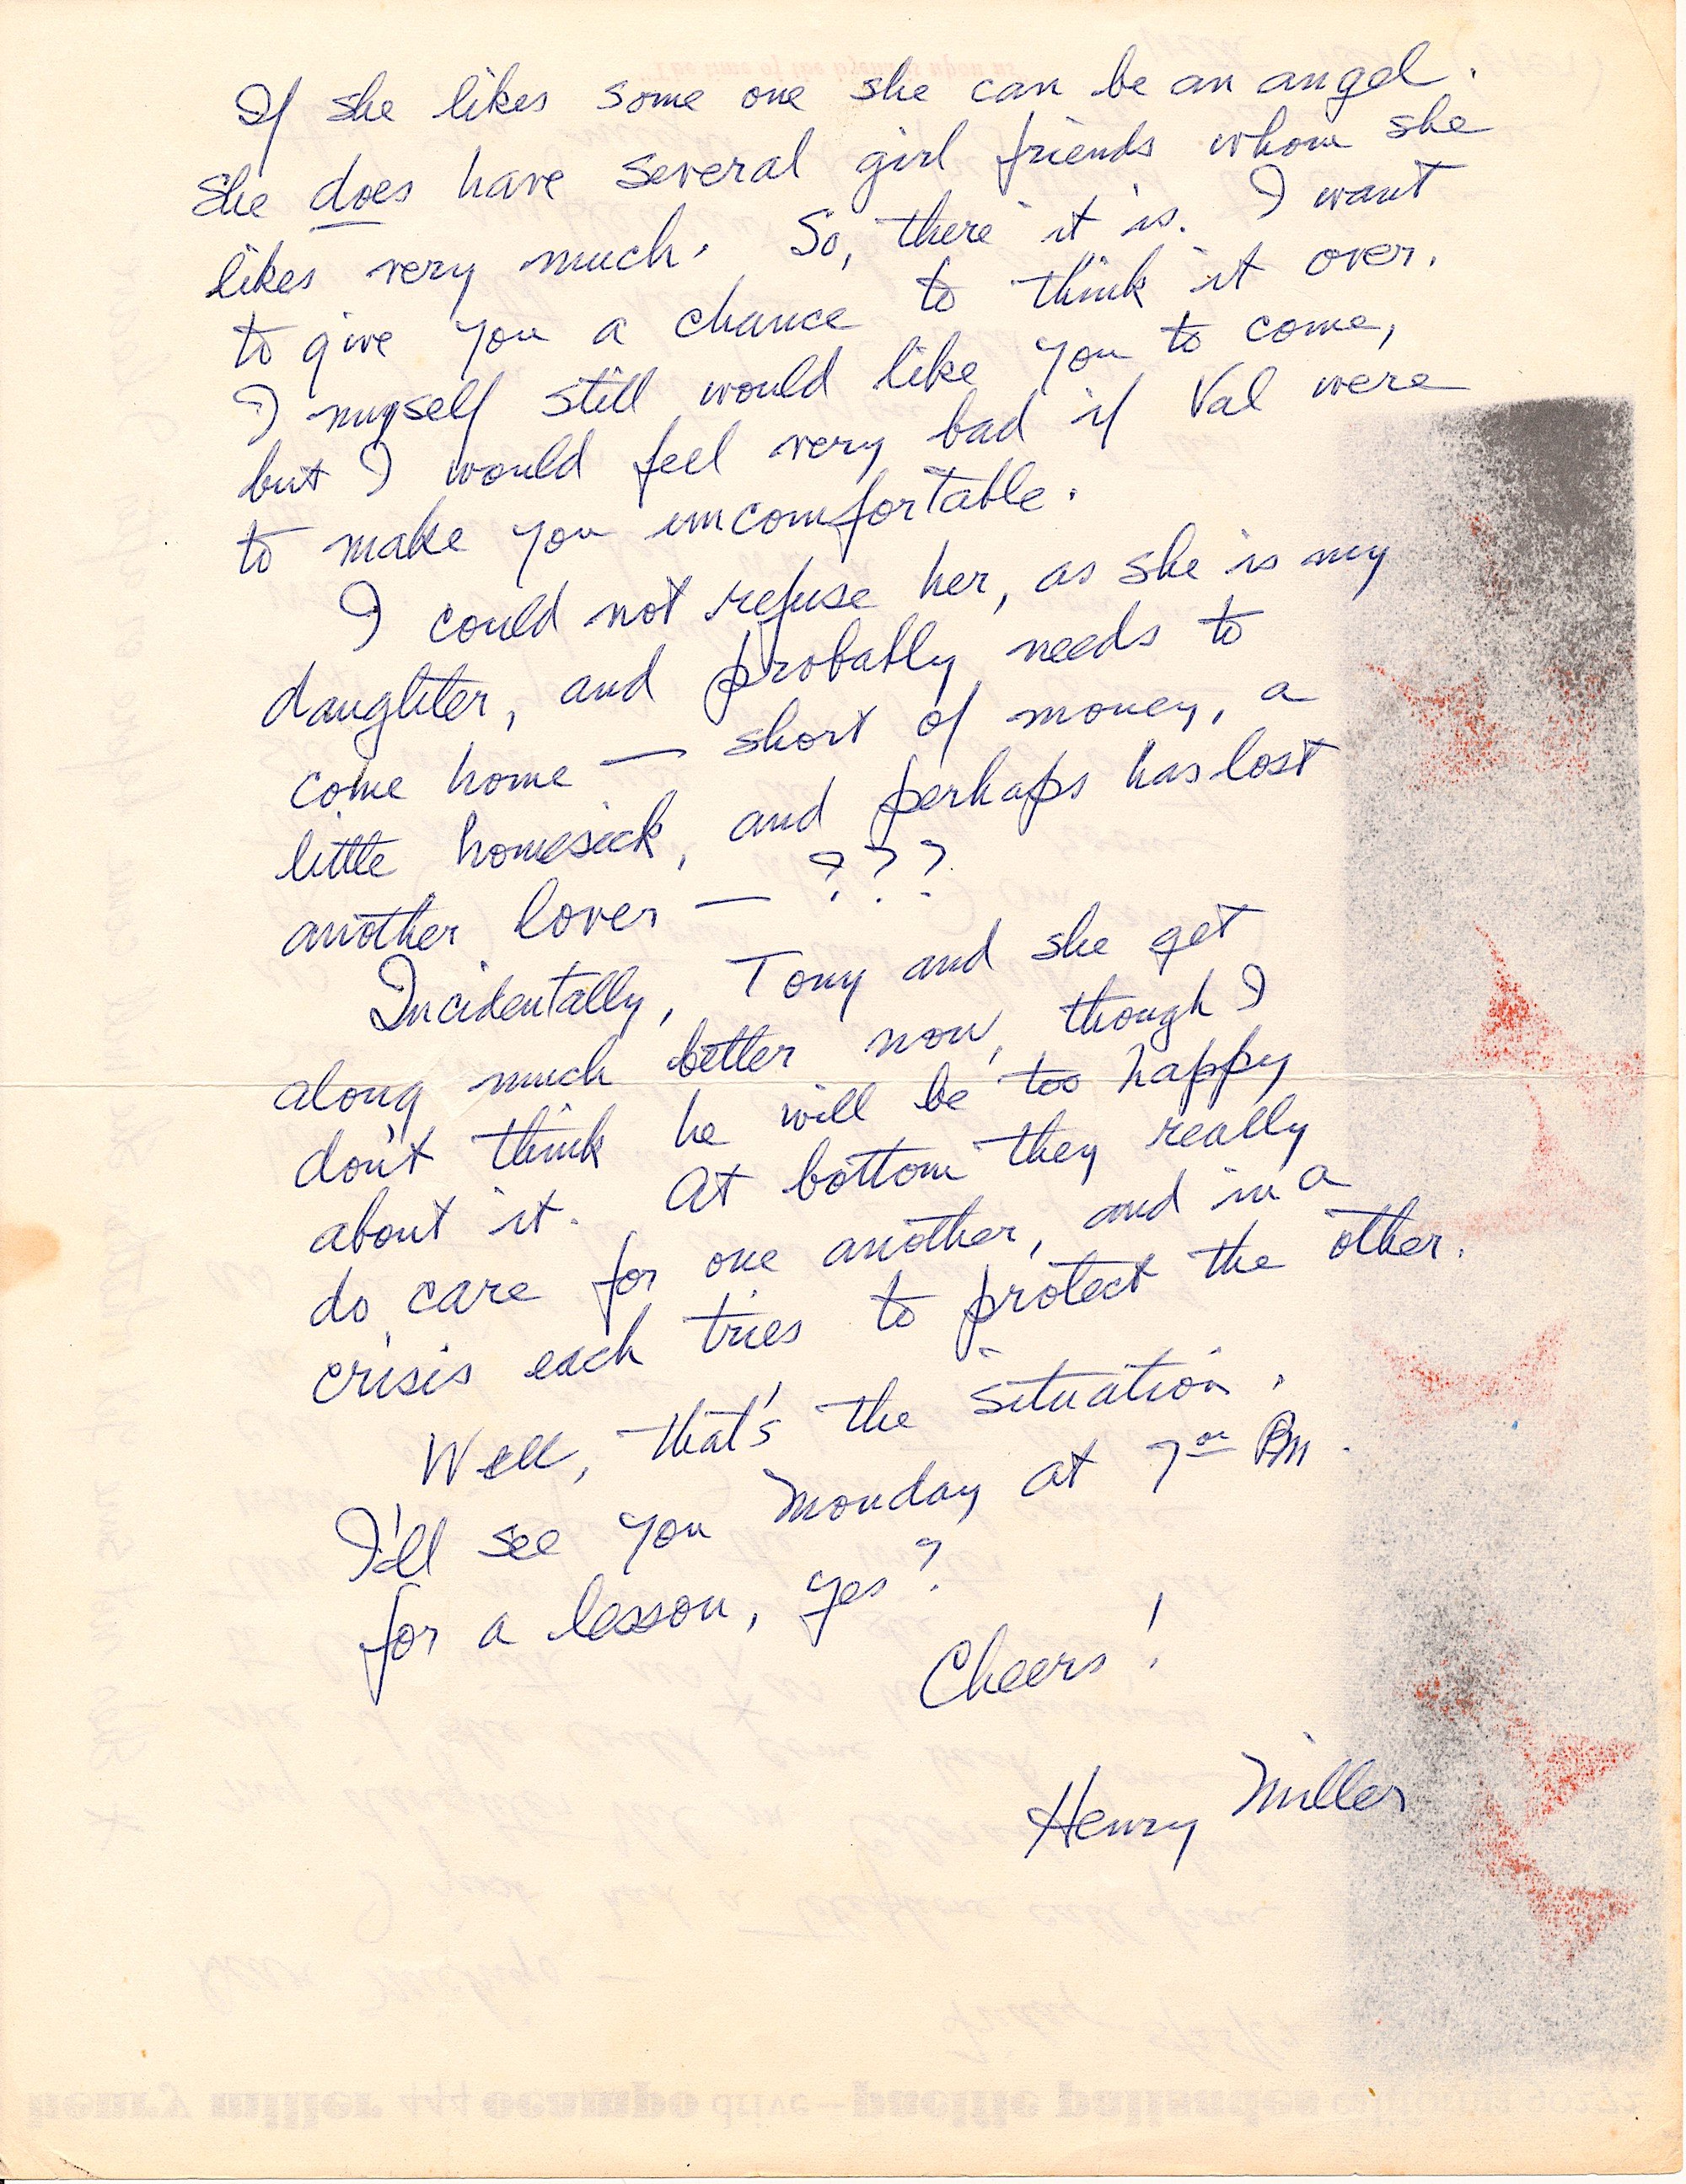 If she likes some one she can be an angel.
She does have several girl friends whom she
likes very much. So, there it is. I want
to give you a chance to think it over.
I myself still would like you to come,
but I would feel very bad if Val were
to make you uncomfortable.
I could not refuse her, as she is my
daughter, and probably needs to
come home — short of money, a
little homesick, and perhaps has lost
another lover — ???
Incidentally, Tony and she get
along much better now, though I
don't think he will be too happy
about it. At bottom they really
do care for one another, and in a
crisis each tries to protect the other.
Well, that's the situation.
I'll see you Monday at 7 PM.
for a lesson, yes?
Cheers!
Henry Miller
henry miller 444 ocampo drive—pacific palisades california 90272